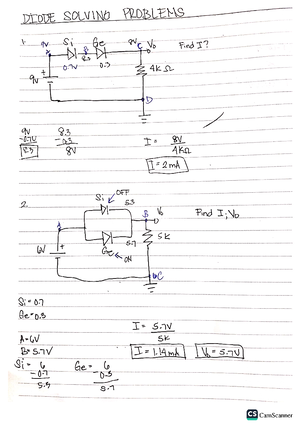 DIODE SOLVING PROBLEMS
1.
9V Si Ge 8V C Vo Find I?
0.7V 8.3 0.3 4KΩ
9V +
D
9V 8.3
-0.7V -0.3 I = 8V
8.3 8V 4KΩ
I = 2mA
2.
Si OFF
5.3 Vo
A B Find I, Vo
6V + 5.7 5K
Ge ON
C
Si = 0.7
Ge = 0.3
I = 5.7V
A = 6V 5K
B = 5.7V I = 1.14mA Vo = 5.7V
Si = 6 Ge = 6
-0.7 -0.3
5.3 5.7
CS CamScanner